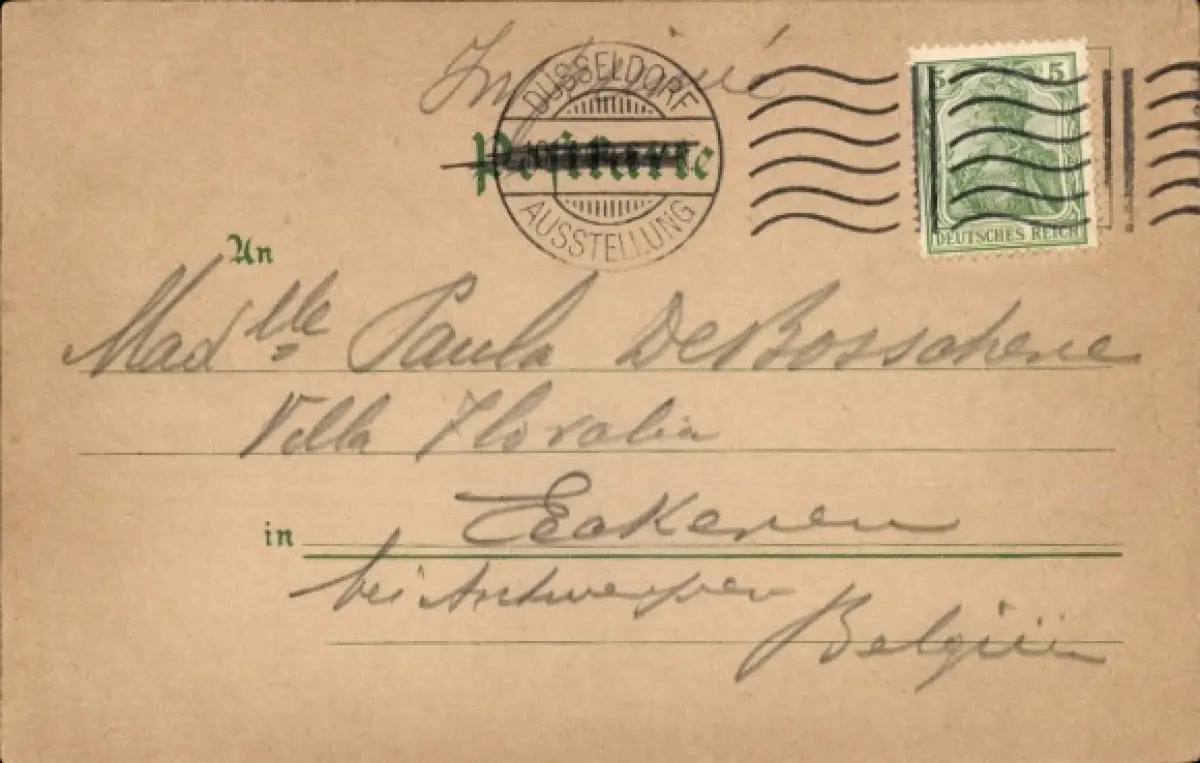 Imprimé
DÜSSELDORF
AUSSTELLUNG
Postkarte
5 5
DEUTSCHES REICH
An
Mad lle Paula DeBosschere
Villa Floralia
in Eeckeren
bei Antwerpen
Belgien